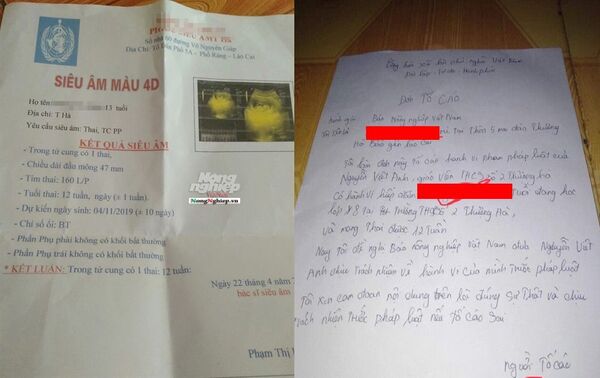 PHÒNG SIÊU ÂM
Số nhà 60 đường Võ Nguyên Giáp
Địa Chỉ: Tổ Dân Phố 5A - Phố Ràng - Lào Cai
SIÊU ÂM MÀU 4D
Họ tên 13 tuổi
Địa chỉ: T Hà
Yêu cầu siêu âm: Thai, TC PP
KẾT QUẢ SIÊU ÂM
- Trong tử cung có 1 thai,
- Chiều dài đầu mông 47 mm
- Tim thai: 160 L/P
- Tuổi thai: 12 tuần, ngày (± 1 tuần)
- Dự kiến ngày sinh: 04/11/2019 (± 10 ngày)
- Chỉ số ối: BT
- Phần Phụ phải không có khối bất thường
- Phần Phụ trái không có khối bất thường
* KẾT LUẬN: Trong tử cung có 1 thai: 12 tuần.
Nông nghiệp
Việt Nam
NongNghiep.vn
Ngày 22 tháng 4 năm
bác sĩ siêu âm
Phạm Thị
Cộng hòa xã hội chủ nghĩa Việt Nam
Độc lập - Tự do - Hạnh phúc
Đơn Tố Cáo
Kính gửi: Báo Nông nghiệp Việt Nam
Thôn 5 Thượng
Hà Bảo Yên Lào Cai
Tôi làm đơn này tố cáo hành vi phạm pháp luật của
Nguyễn Việt Anh, giáo viên THCS số 2 Thượng Hà
Có hành vi hiếp dâm tuổi đang học
lớp 8B Tại trường THCS số 2 Thượng Hà,
và mang thai được 12 tuần
Nay tôi đề nghị Báo nông nghiệp Việt Nam đưa Nguyễn Việt
Anh chịu trách nhiệm về hành vi của mình trước pháp luật
Tôi xin cam đoan nội dung trên là đúng sự thật và chịu
trách nhiệm trước pháp luật nếu tố cáo sai.
Người tố cáo